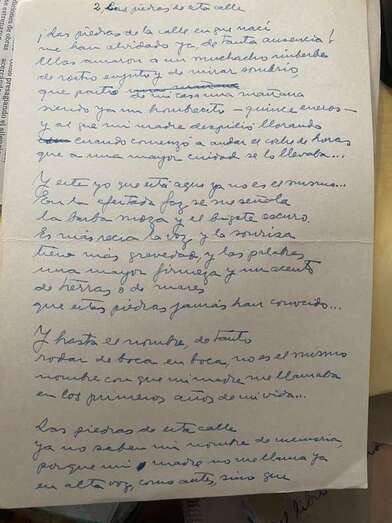 2 Las piedras de esta calle
¡Las piedras de la calle en que nací
me han olvidado ya, de tanta ausencia!
Ellas amaron a un muchacho imberbe
de rostro enjuto y de mirar sombrío
que partió de mi casa una mañana
siendo ya un hombrecito — quince eneros —
y al que mi madre despidió llorando
cuando comenzó a andar el coche de horas
que a una mayor ciudad se lo llevaba...
Y este yo que está aquí ya no es el mismo...
En la afeitada faz se me señala
la barba moza y el bigote oscuro.
Es más recia la voz, y la sonrisa
tiene más gravedad, y las palabras
una mayor firmeza y un acento
de tierras o de mares
que estas piedras jamás han conocido...
Y hasta el nombre, de tanto
rodar de boca en boca, no es el mismo
nombre con que mi madre me llamaba
en los primeros años de mi vida...
Las piedras de esta calle
ya no saben mi nombre de memoria,
porque mi madre no me llama ya
en alta voz, como antes, sino que